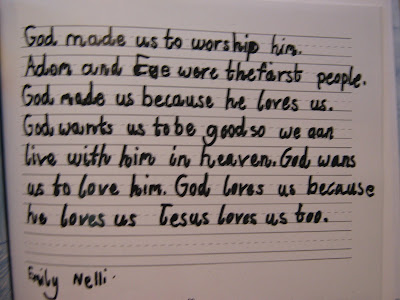 God made us to worship him.
Adam and Eve were the farst people.
God made us because he loves us.
God wants us to be good so we can
live with him in heaven. God wans
us to love him. God loves us because
he loves us Jesus loves us too.
Emily Nelli.